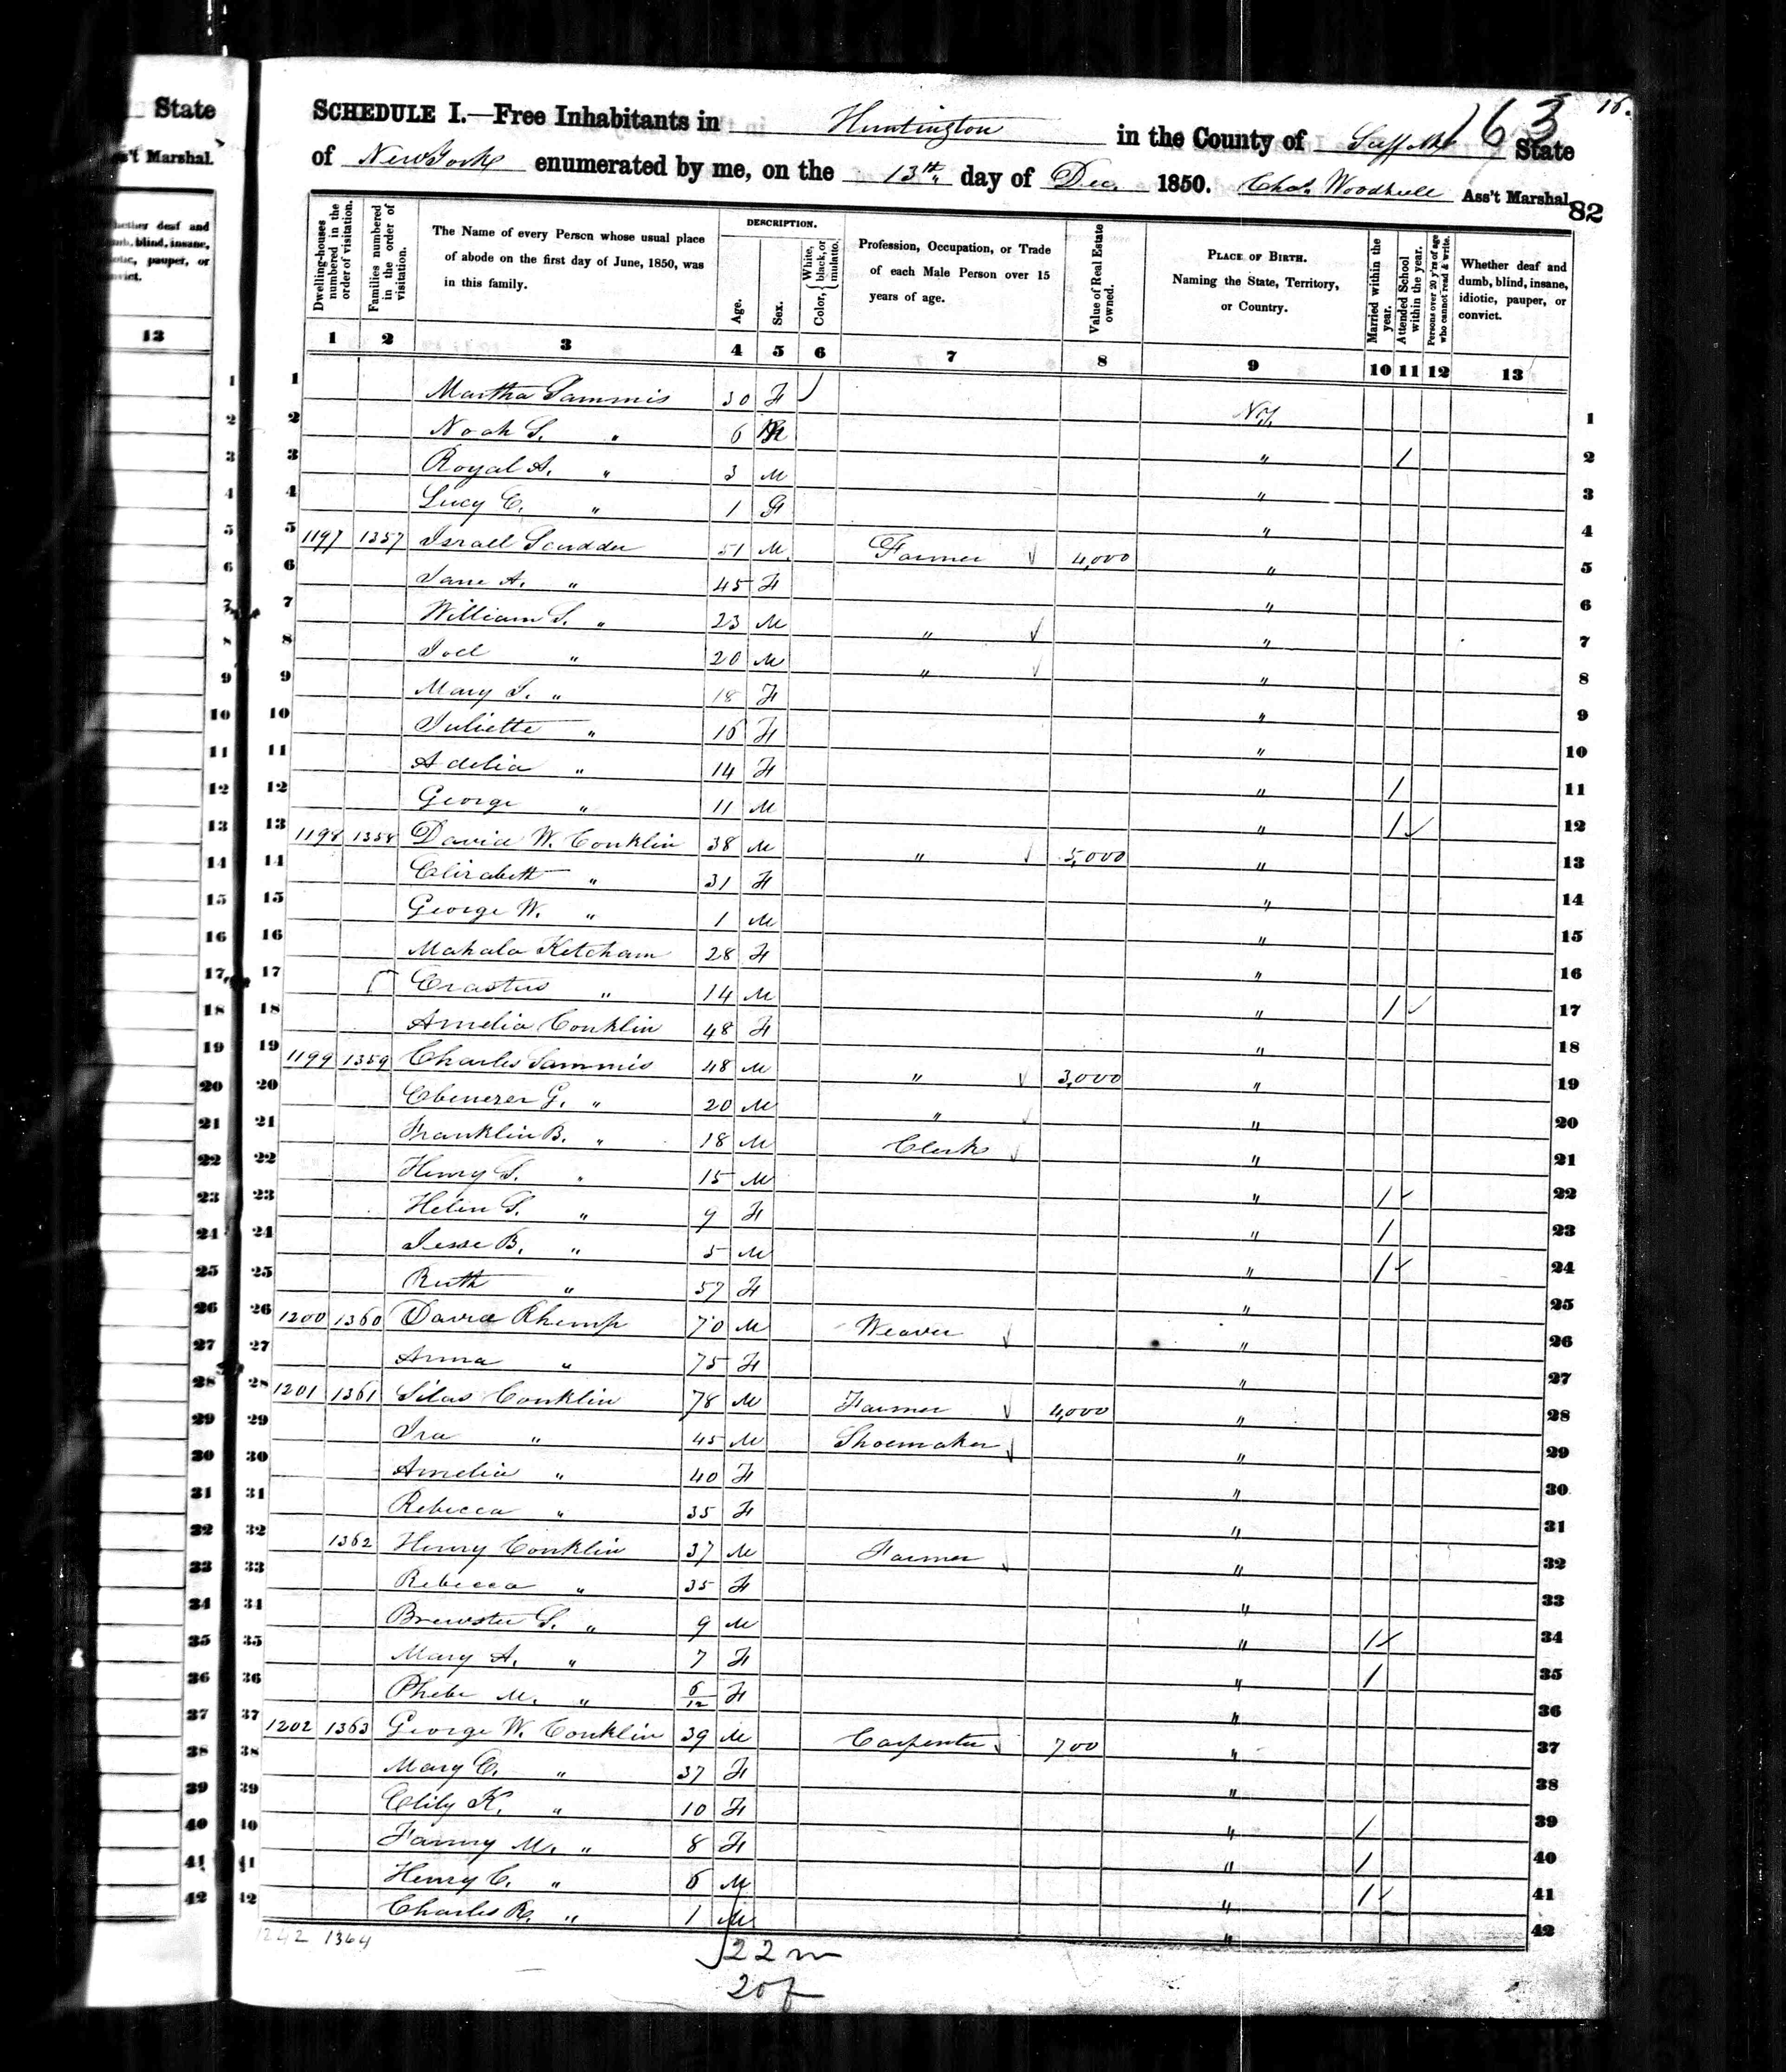 State
s't Marshal.
hether deaf and
umb, blind, insane,
otic, pauper, or
nvict.
13
16.
163
SCHEDULE I.—Free Inhabitants in Huntington in the County of Suffolk State
of New York enumerated by me, on the 13th day of Dec. 1850. Chas. Woodhull Ass't Marshal.
82
Dwelling-houses numbered in the order of visitation.
Families numbered in the order of visitation.
The Name of every Person whose usual place of abode on the first day of June, 1850, was in this family.
DESCRIPTION.
Age.
Sex.
Color, { White, black, or mulatto.
Profession, Occupation, or Trade of each Male Person over 15 years of age.
Value of Real Estate owned.
PLACE OF BIRTH.
Naming the State, Territory, or Country.
Married within the year.
Attended School within the year.
Persons over 20 y'rs of age who cannot read & write.
Whether deaf and dumb, blind, insane, idiotic, pauper, or convict.
1 2 3 4 5 6 7 8 9 10 11 12 13
1 Martha Sammis 30 F N.Y. 1
2 Noah S. " 6 M " / 2
3 Royal A. " 3 M " 3
4 Lucy C. " 1 F " 4
5 1197 1357 Israel Scudder 51 M Farmer 4,000 " 5
6 Jane A. " 45 F " 6
7 William S. " 23 M " " 7
8 Joel " 20 M " " 8
9 Mary S. " 18 F " 9
10 Juliette " 16 F " 10
11 Adelia " 14 F " / 11
12 George " 11 M " / 12
13 1198 1358 David W. Conklin 38 M " 5,000 " 13
14 Elizabeth " 31 F " 14
15 George W. " 1 M " 15
16 Mahala Ketcham 28 F " 16
17 Erastus " 14 M " / 17
18 Amelia Conklin 48 F " 18
19 1199 1359 Charles Sammis 48 M " 3,000 " 19
20 Ebenezer G. " 20 M " " 20
21 Franklin B. " 18 M Clerk " 21
22 Henry S. " 15 M " / 22
23 Helen S. " 9 F " / 23
24 Jesse B. " 5 M " / 24
25 Ruth " 57 F " 25
26 1200 1360 David Rhemp 70 M Weaver " 26
27 Anna " 75 F " 27
28 1201 1361 Silas Conklin 78 M Farmer 4,000 " 28
29 Ira " 45 M Shoemaker " 29
30 Amelia " 40 F " 30
31 Rebecca " 35 F " 31
32 1362 Henry Conklin 37 M Farmer " 32
33 Rebecca " 35 F " 33
34 Brewster S. " 9 M " / 34
35 Mary A. " 7 F " / 35
36 Phebe M. " 6/12 F " 36
37 1202 1363 George W. Conklin 39 M Carpenter 700 " 37
38 Mary C. " 37 F " 38
39 K. " 10 F " / 39
40 Fanny M. " 8 F " / 40
41 Henry C. " 6 M " / 41
42 Charles R. " 1 M " 42
1242 1364
22 m
20 f